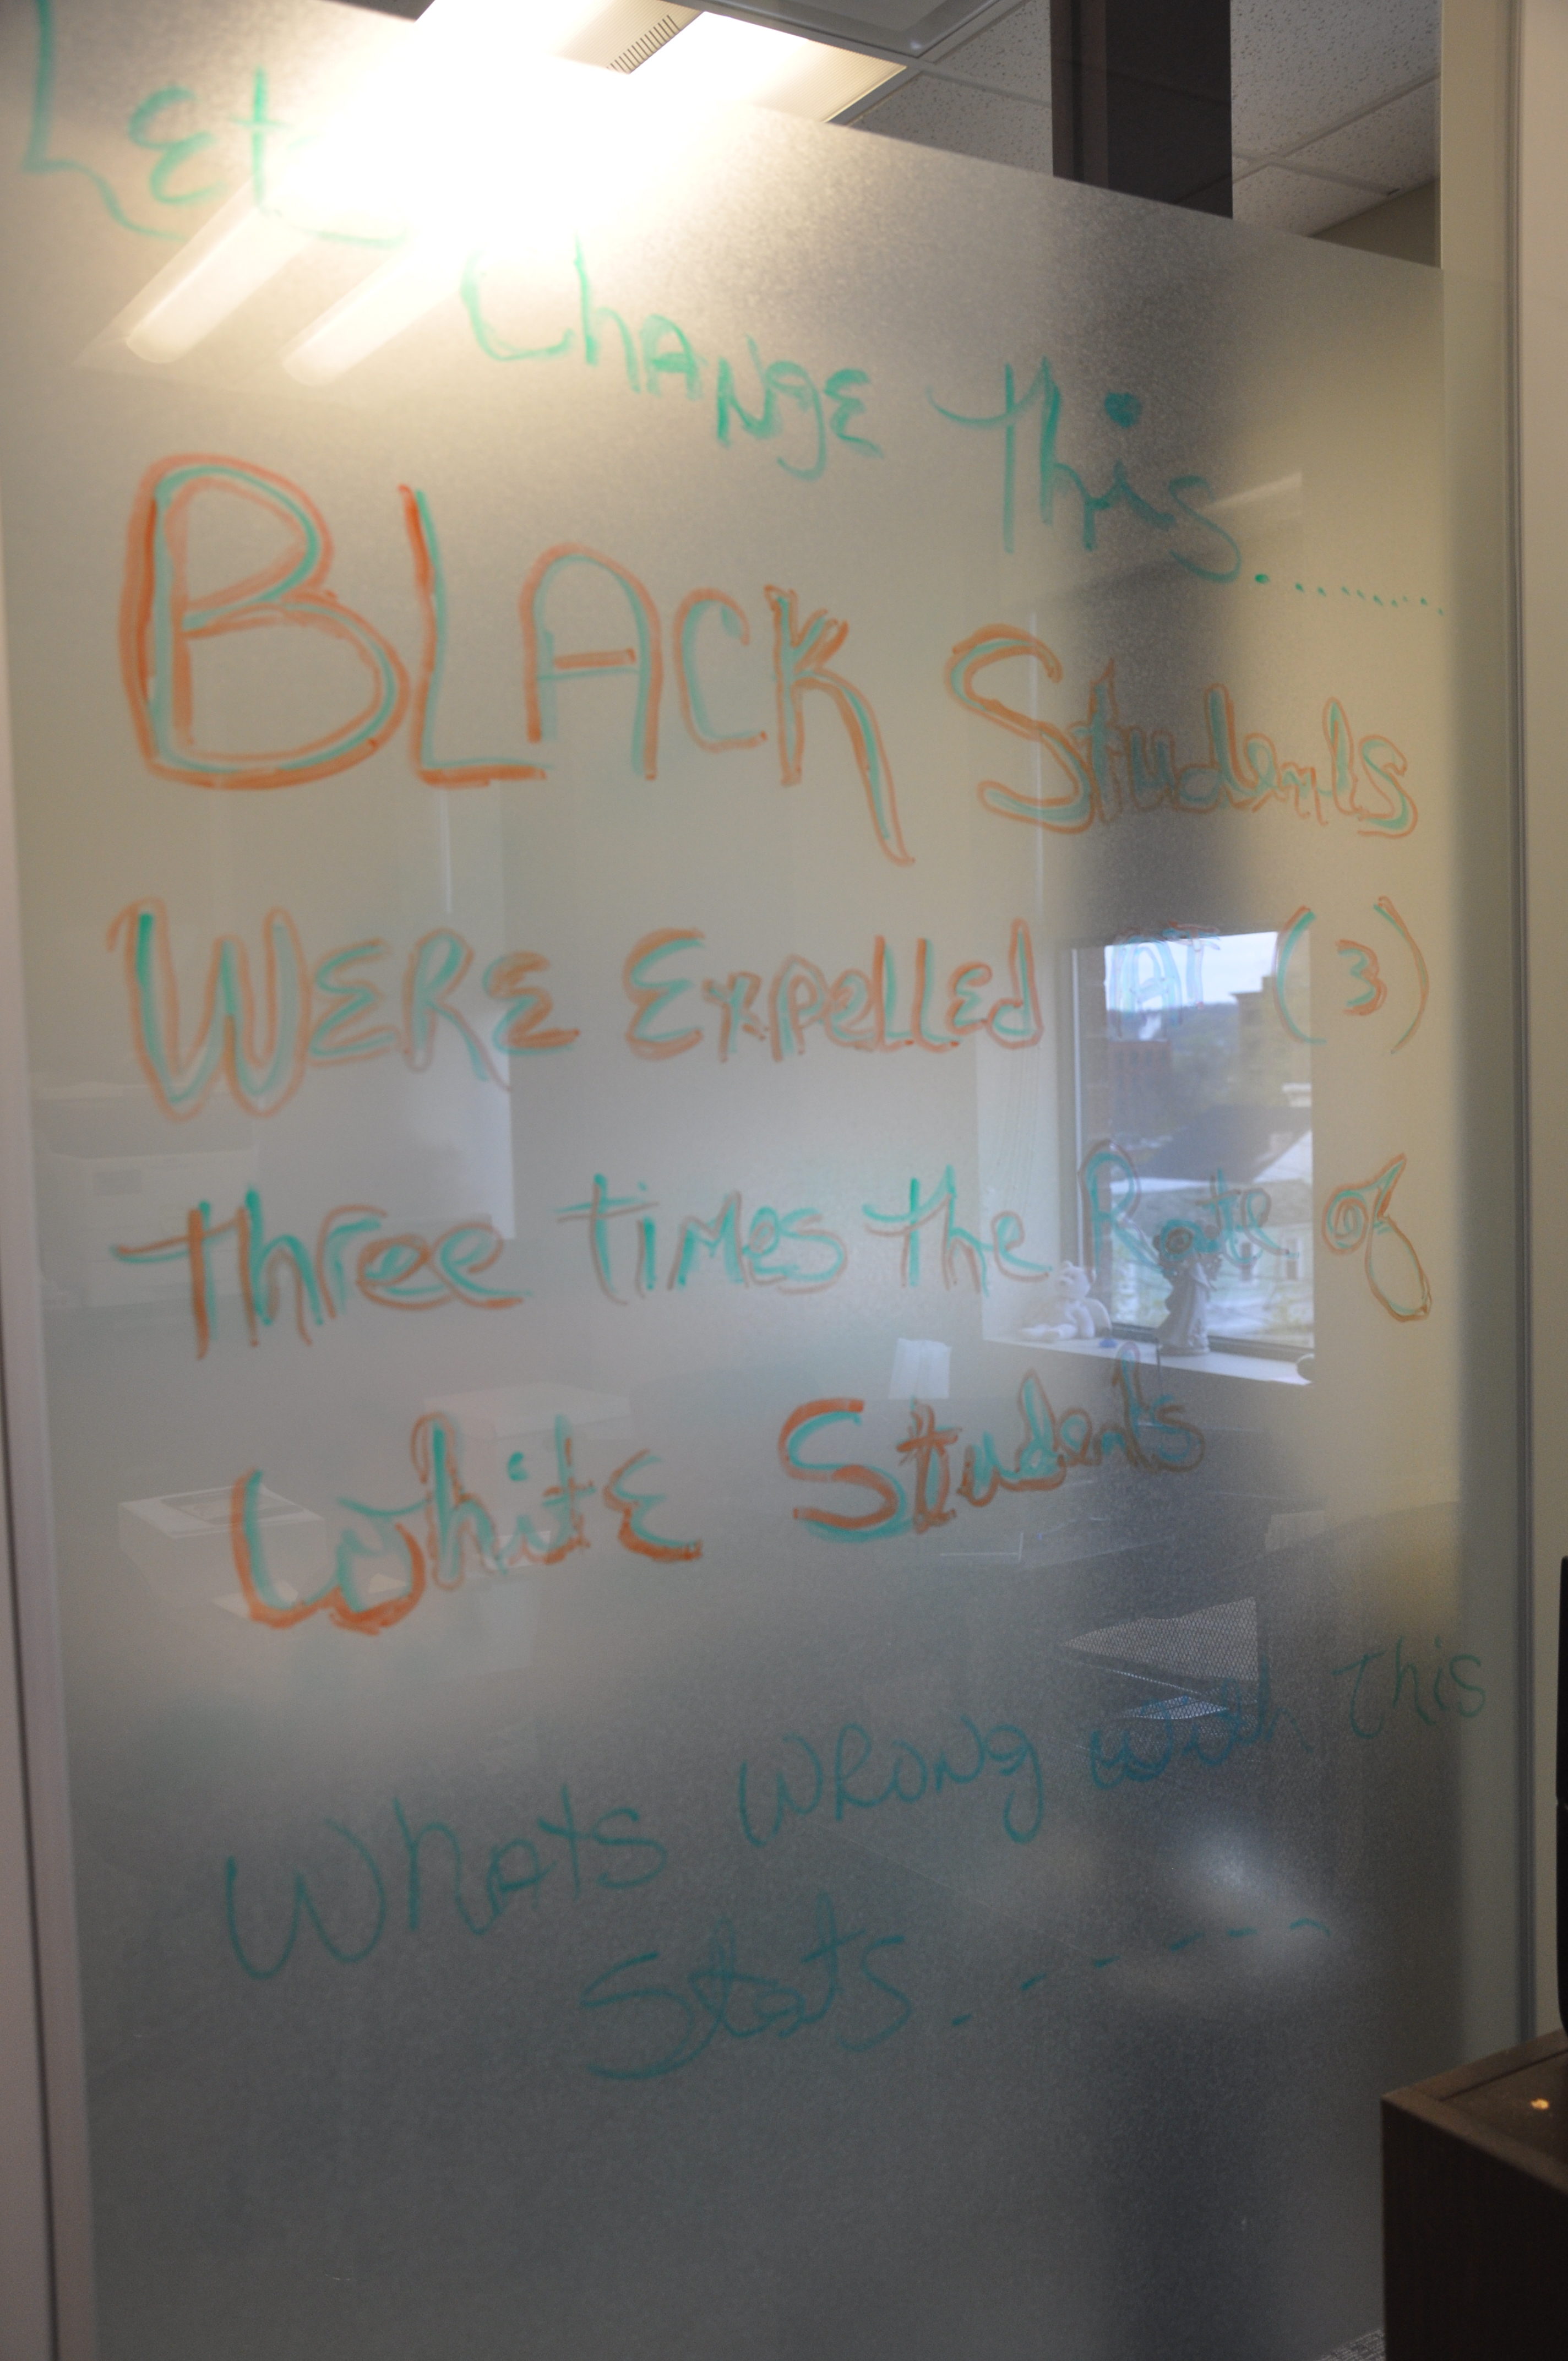 Let Change this.........
BLACK Students
WERE Expelled AT (3)
three times the Rate of
White Students
Whats wrong with this
Stats.-----